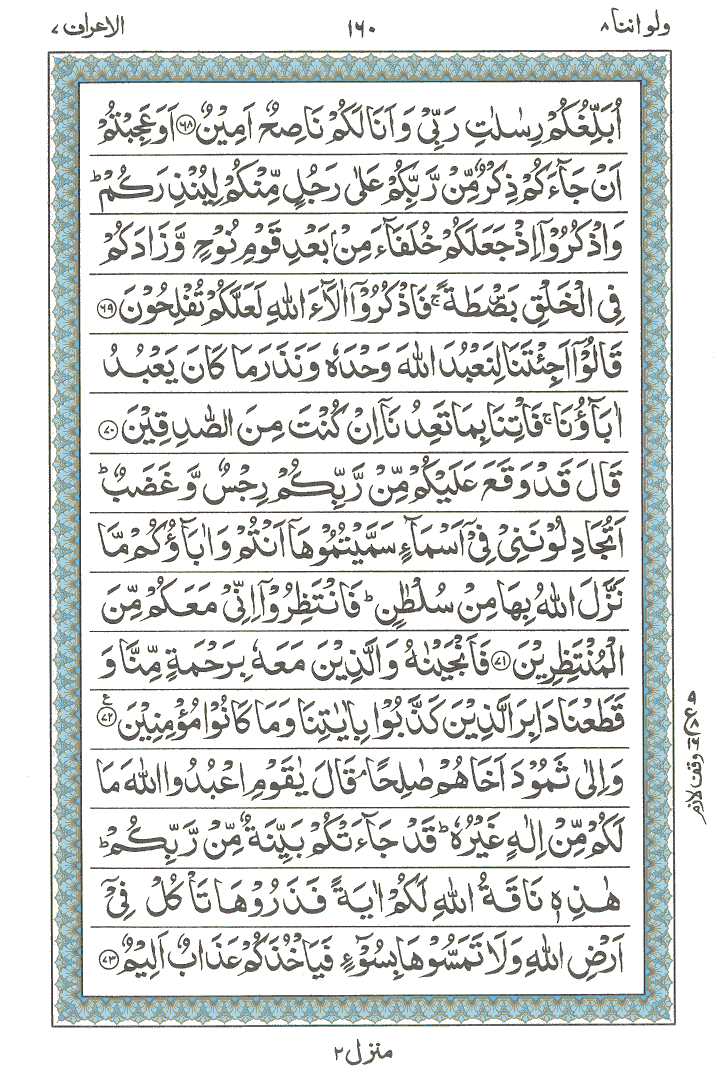 ولو اننا ٨ ١٦٠ الاعراف ٧
اُبَلِّغُكُمۡ رِسٰلٰتِ رَبِّىۡ وَاَنَا لَـكُمۡ نَاصِحٌ اَمِيۡنٌ ﴿٦٨﴾ اَوَعَجِبۡتُمۡ
اَنۡ جَآءَكُمۡ ذِكۡرٌ مِّنۡ رَّبِّكُمۡ عَلٰى رَجُلٍ مِّنۡكُمۡ لِيُنۡذِرَكُمۡ‌ؕ
وَاذۡكُرُوۡۤا اِذۡ جَعَلَـكُمۡ خُلَفَآءَ مِنۡۢ بَعۡدِ قَوۡمِ نُوۡحٍ وَّزَادَكُمۡ
فِى الۡخَـلۡقِ بَصۜۡطَةً‌‌ ۚ فَاذۡكُرُوۡۤا اٰ لَۤاءَ اللّٰهِ لَعَلَّكُمۡ تُفۡلِحُوۡنَ ﴿٦٩﴾
قَالُوۡۤا اَجِئۡتَنَا لِنَعۡبُدَ اللّٰهَ وَحۡدَهٗ وَنَذَرَ مَا كَانَ يَعۡبُدُ
اٰبَآؤُنَا‌ ۚ فَاۡتِنَا بِمَا تَعِدُنَاۤ اِنۡ كُنۡتَ مِنَ الصّٰدِقِيۡنَ ﴿٧٠﴾
قَالَ قَدۡ وَقَعَ عَلَيۡكُمۡ مِّنۡ رَّبِّكُمۡ رِجۡسٌ وَّغَضَبٌ‌ ؕ
اَتُجَادِلُوۡنَنِىۡ فِىۡۤ اَسۡمَآءٍ سَمَّيۡتُمُوۡهَاۤ اَنۡـتُمۡ وَاٰبَآؤُكُمۡ مَّا
نَزَّلَ اللّٰهُ بِهَا مِنۡ سُلۡطٰنٍ‌ؕ فَانْتَظِرُوۡۤا اِنِّىۡ مَعَكُمۡ مِّنَ
الۡمُنۡتَظِرِيۡنَ ﴿٧١﴾ فَاَنۡجَيۡنٰهُ وَالَّذِيۡنَ مَعَهٗ بِرَحۡمَةٍ مِّنَّا وَ
قَطَعۡنَا دَابِرَ الَّذِيۡنَ كَذَّبُوۡا بِاٰيٰتِنَا‌ وَمَا كَانُوۡا مُؤۡمِنِيۡنَ ﴿٧٢﴾ ع
وَاِلٰى ثَمُوۡدَ اَخَاهُمۡ صٰلِحًا‌ۘ قَالَ يٰقَوۡمِ اعۡبُدُوا اللّٰهَ مَا
لَـكُمۡ مِّنۡ اِلٰهٍ غَيۡرُهٗ‌ ؕ قَدۡ جَآءَتۡكُمۡ بَيِّنَةٌ مِّنۡ رَّبِّكُمۡ‌ ؕ
هٰذِهٖ نَاقَةُ اللّٰهِ لَـكُمۡ اٰيَةً‌ فَذَرُوۡهَا تَاۡكُلۡ فِىۡۤ
اَرۡضِ اللّٰهِ‌ وَلَا تَمَسُّوۡهَا بِسُوۡٓءٍ فَيَاۡخُذَكُمۡ عَذَابٌ اَلِيۡمٌ‏ ﴿٧٣﴾
وقف لازم
منزل ٢